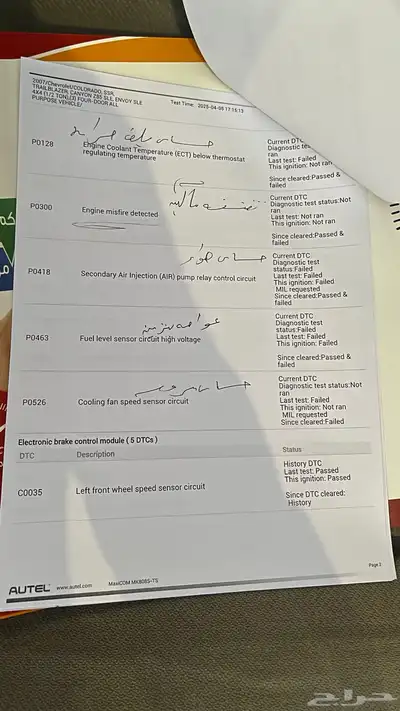 2007/Chevrolet/COLORADO, SSR,
TRAILBLAZER, CANYON Z85 SLE, ENVOY SLE
4X4 (1/2 TON)(T) FOUR-DOOR ALL
PURPOSE VEHICLE/
Test Time: 2025-04-08 17:15:13
حساس
P0128
Engine Coolant Temperature (ECT) below thermostat
regulating temperature
Current DTC
Diagnostic
ran
Last test: Failed
This ignition: Not ran
Since cleared:Passed &
failed
P0300
Engine misfire detected
Current DTC
Diagnostic test status:Not
ran
Last test: Not ran
This ignition: Not ran
Since cleared:Passed &
failed
حساس هواء
P0418
Secondary Air Injection (AIR) pump relay control circuit
Current DTC
Diagnostic test
status:Failed
Last test: Failed
This ignition: Failed
MIL requested
Since cleared:Passed &
failed
عوامه بنزين
P0463
Fuel level sensor circuit high voltage
Current DTC
Diagnostic test
status:Failed
Last test: Failed
This ignition: Failed
Since cleared:Passed &
failed
حساس
P0526
Cooling fan speed sensor circuit
Current DTC
Diagnostic test status:Not
ran
Last test: Failed
This ignition: Not ran
MIL requested
Since cleared:Failed
Electronic brake control module ( 5 DTCs )
DTC
Description
Status
C0035
Left front wheel speed sensor circuit
History DTC
Last test: Passed
This ignition: Passed
Since DTC cleared:
History
AUTEL
www.autel.com
MaxiCOM MK808S-TS
Page 3
حراج